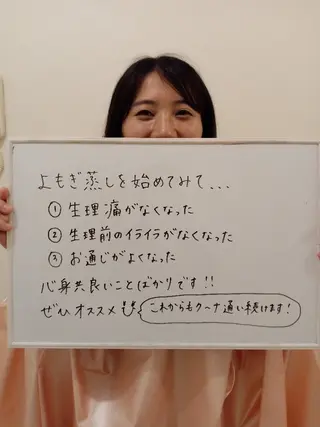 よもぎ蒸しを始めてみて...
① 生理痛がなくなった
② 生理前のイライラがなくなった
③ お通じがよくなった
心身共良いことばかりです!!
ぜひオススメ これからもクーナ通い続けます!